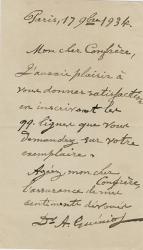 Paris, 17 9bre 1934.
Mon cher Confrère,
J'aurai plaisir à
vous donner satisfaction
en inscrivant les
qq. lignes que vous
demandez sur votre
exemplaire.
Agréez, mon cher
Confrère,
l'assurance de mes
sentiments dévoués
Dr A. Guiniot